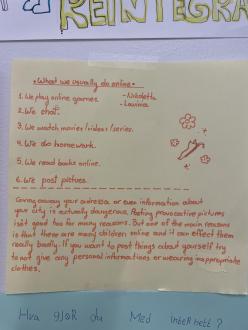 REINTEGRA
• What we usually do online •
1. We play online games. -Nikoletta
2. We chat. -Lavinia
3. We watch movies/videos/series.
4. We do homework.
5. We read books online.
6. We post pictures.
Giving away your adress or even information about
your city is actually dangerous. Posting provocative pictures
isn't good too for many reasons. But one of the main reasons
is that there are many children online and it can effect them
really badly. If you want to post things about yourself try
to not give any personal informations or wearing inappropriate
clothes.
Hva gjør du Med internett?